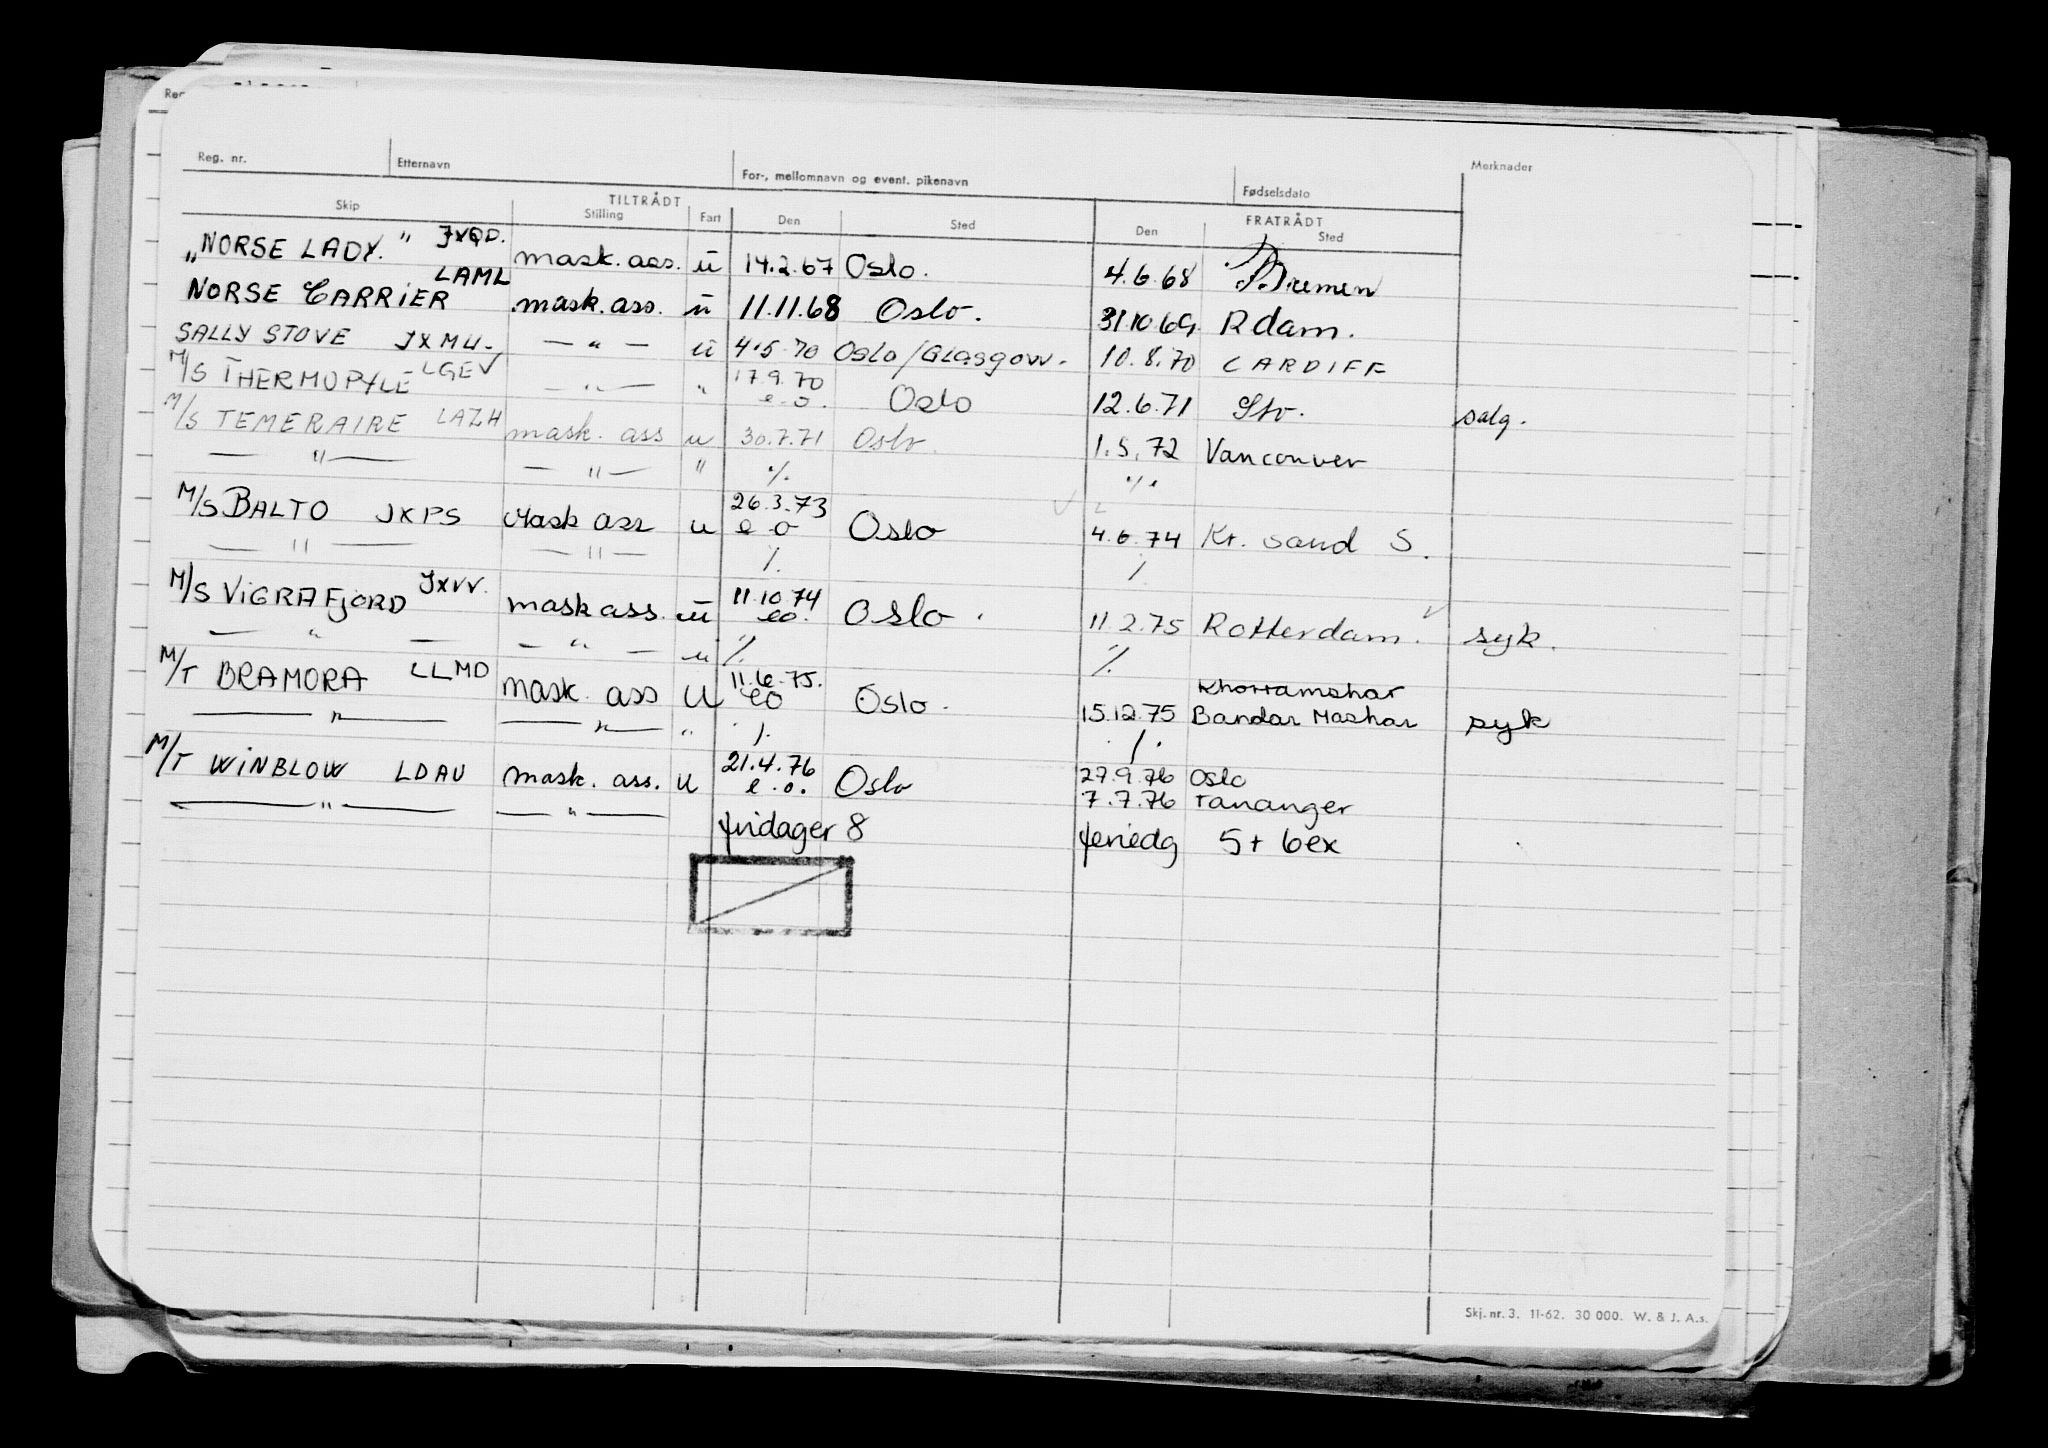 Reg. nr. Etternavn For-, mellomnavn og event. pikenavn Fødselsdato Merknader
TILTRÅDT FRATRÅDT
Skip Stilling Fart Den Sted Den Sted
"NORSE LADY." JXQD. mask. ass. u 14.2.67 Oslo. 4.6.68 Bremen
NORSE CARRIER LAML mask. ass. u 11.11.68 Oslo. 31.10.69. Rdam.
SALLY STOVE JXMU — " — u 4.5.70 Oslo/Glasgow. 10.8.70 CARDIFF
M/S THERMOPYLE LGEV — " — " 17.9.70 e.o. Oslo 12.6.71 Stv. salg.
M/S TEMERAIRE LAZH mask. ass u 30.7.71 Oslo. 1.5.72 Vancouver
— " — — " — " ./. ./.
M/S BALTO JXPS Mask ass u 26.3.73 e o Oslo 4.6.74 Kr. sand S.
— " — — " — /. /.
M/S VIGRAFJORD JXVV. mask ass. u 11.10.74 eo. Oslo. 11.2.75 Rotterdam. syk.
— " — — " — u /. /.
M/T BRAMORA LLMD mask. ass u 11.6.75. eo Oslo. Khorramshar
— " — — " — " /. 15.12.75 Bandar Mashar syk
./.
M/T WINBLOW LDAU mask. ass. u 21.4.76 e.o. Oslo 27.9.76 Oslo
— " — — " — 7.7.76 Tananger
fridager 8 feriedg 5 + 6ex
Skj. nr. 3. 11-62. 30 000. W. & J. A.s.